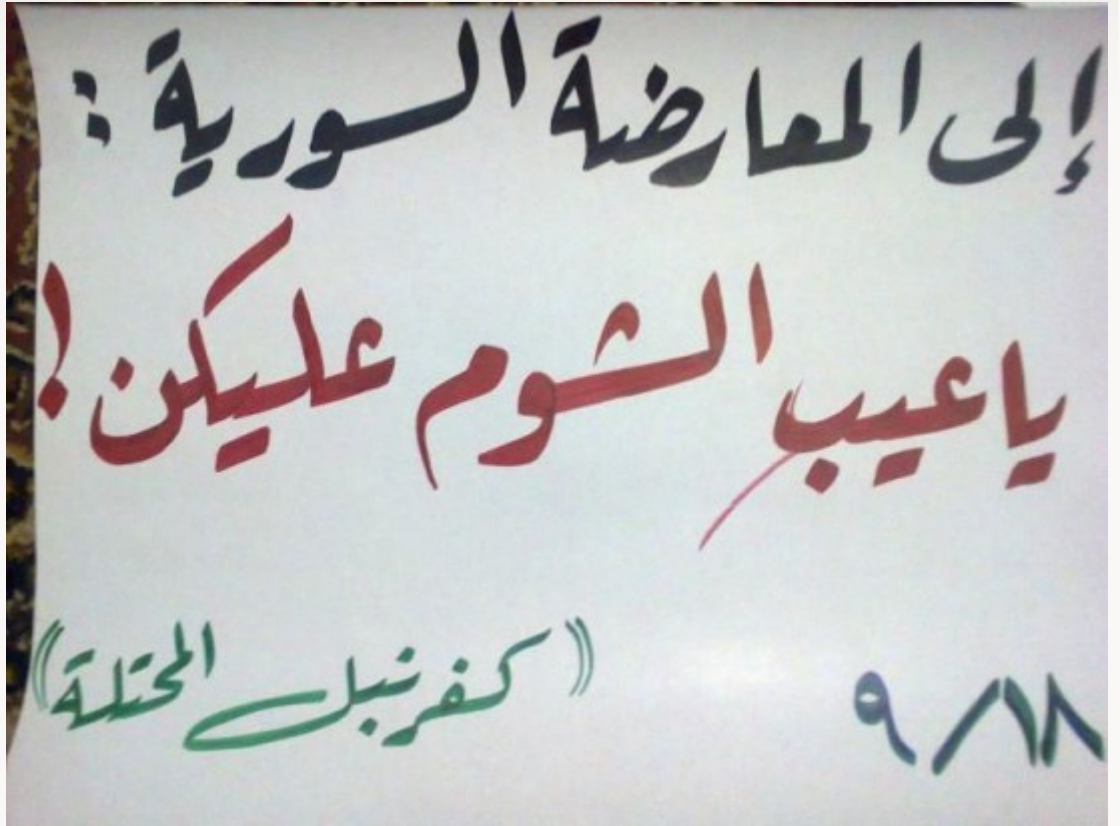 إلى المعارضة السورية :
يا عيب الشوم عليكن !
٩/١٨ ((كفرنبل المحتلة))